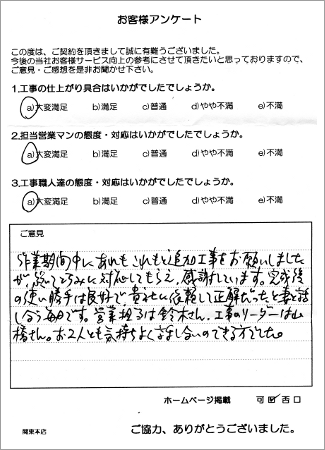 お客様アンケート
この度は、ご契約を頂きまして誠に有難うございました。
今後の当社お客様サービス向上の参考にさせて頂きたいと思っておりますので、
ご意見・ご感想を是非お聞かせ下さい。
1.工事の仕上がり具合はいかがでしたでしょうか。
a)大変満足 b)満足 c)普通 d)やや不満 e)不満
2.担当営業マンの態度・対応はいかがでしたでしょうか。
a)大変満足 b)満足 c)普通 d)やや不満 e)不満
3.工事職人達の態度・対応はいかがでしたでしょうか。
a)大変満足 b)満足 c)普通 d)やや不満 e)不満
ご意見
作業期間中にあれもこれもと追加工事をお願いしました
が、に対応してもらえ、感謝しています。完成後
の使い勝手は良好で貴社に依頼して正解だったと妻と話
している毎日です。営業担当は鈴木さん、工事のリーダーは山
橋さん。お2人とも気持ちよくお話し合いのできる方でした。
ホームページ掲載 可 否
ご協力、ありがとうございました。
関東本店